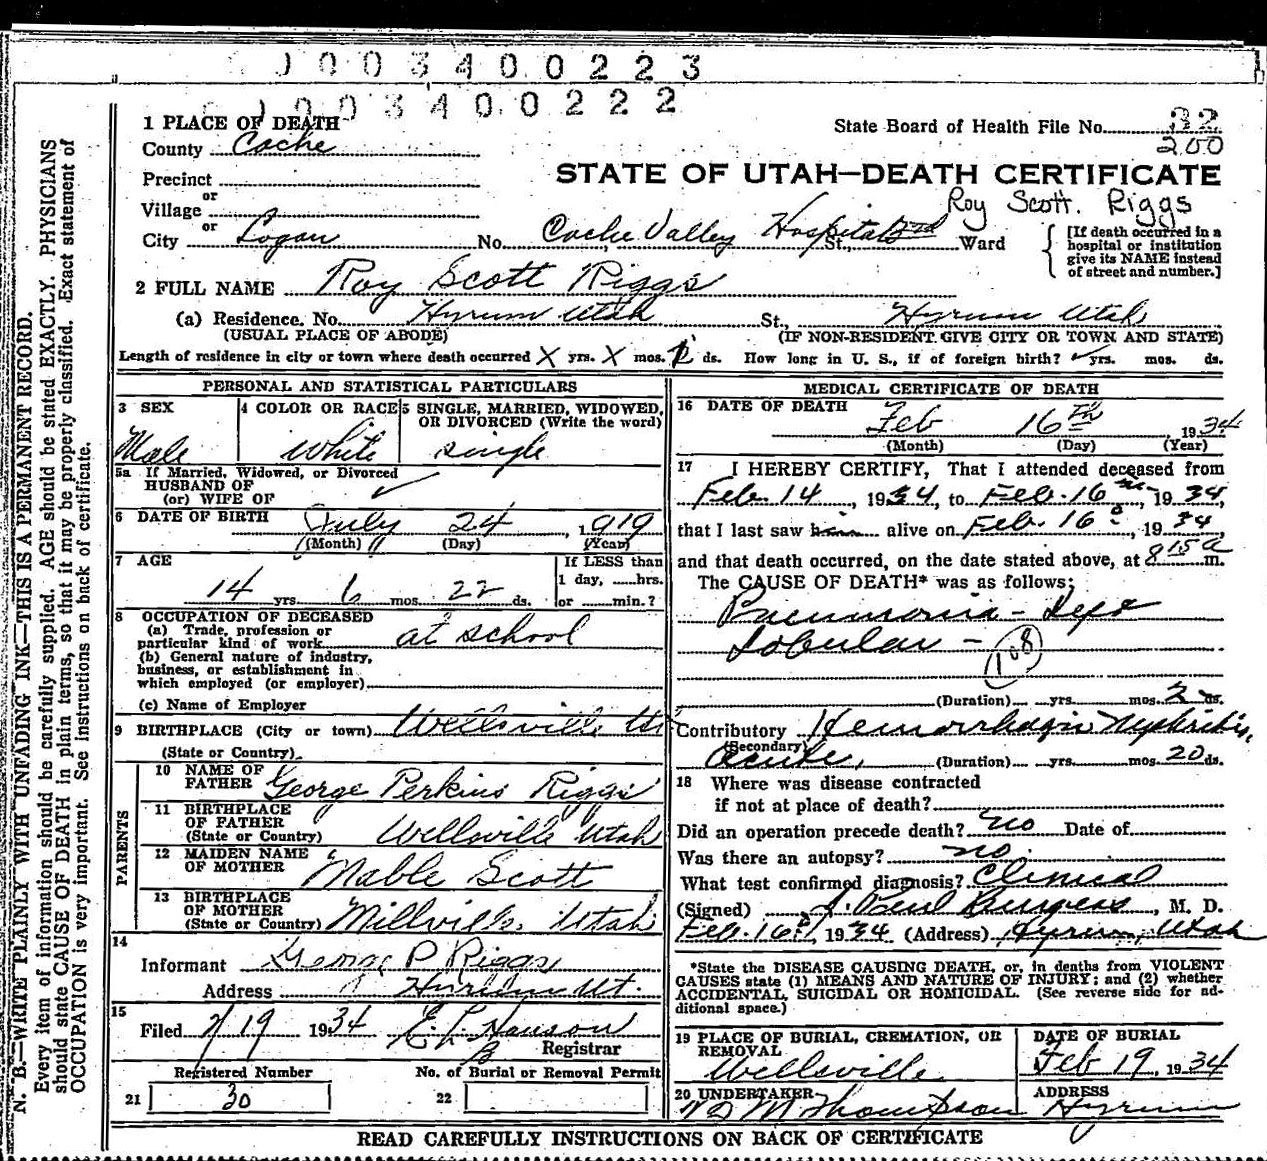 1003400223
1003400222
1 PLACE OF DEATH
State Board of Health File No. 32
200
County Cache
STATE OF UTAH—DEATH CERTIFICATE
Precinct
or
Roy Scott. Riggs
Village
or
City Logan No. Cache Valley Hospital St., 2nd Ward
[If death occurred in a hospital or institution give its NAME instead of street and number.]
2 FULL NAME Roy Scott Riggs
(a) Residence. No. Hyrum Utah St., Hyrum Utah
(USUAL PLACE OF ABODE) (IF NON-RESIDENT GIVE CITY OR TOWN AND STATE)
Length of residence in city or town where death occurred X yrs. X mos. ds. How long in U. S., if of foreign birth? yrs. mos. ds.
PERSONAL AND STATISTICAL PARTICULARS
3 SEX
Male
4 COLOR OR RACE
White
5 SINGLE, MARRIED, WIDOWED, OR DIVORCED (Write the word)
single
5a If Married, Widowed, or Divorced
HUSBAND OF
(or) WIFE OF
6 DATE OF BIRTH July 24, 1919
(Month) (Day) (Year)
7 AGE
14 yrs. 6 mos. 22 ds.
If LESS than
1 day, hrs.
or min.?
8 OCCUPATION OF DECEASED
(a) Trade, profession or
particular kind of work at school
(b) General nature of industry,
business, or establishment in
which employed (or employer)
(c) Name of Employer
9 BIRTHPLACE (City or town) Wellsville Ut
(State or Country)
PARENTS
10 NAME OF
FATHER George Perkins Riggs
11 BIRTHPLACE
OF FATHER
(State or Country) Wellsville Utah
12 MAIDEN NAME
OF MOTHER Mable Scott
13 BIRTHPLACE
OF MOTHER
(State or Country) Millville, Utah
14
Informant George P Riggs
Address Hyrum Ut.
15
Filed 2/19 1934 E. L. Hanson
Registrar
Registered Number No. of Burial or Removal Permit
21 30 22
MEDICAL CERTIFICATE OF DEATH
16 DATE OF DEATH
Feb 16th 1934
(Month) (Day) (Year)
17 I HEREBY CERTIFY, That I attended deceased from
Feb. 14, 1934, to Feb. 16, 1934,
that I last saw him alive on Feb. 16, 1934,
and that death occurred, on the date stated above, at 8 15 a m.
The CAUSE OF DEATH* was as follows:
Pneumonia - Left
Lobular -
108
(Duration) yrs. mos. 2 ds.
Contributory Hemorrhagic Nephritis,
(Secondary)
Acute, (Duration) yrs. mos. 20 ds.
18 Where was disease contracted
if not at place of death?
Did an operation precede death? no Date of
Was there an autopsy? no.
What test confirmed diagnosis? Clinical
(Signed) J. Paul Burgess, M. D.
Feb. 16, 1934 (Address) Hyrum, Utah
*State the DISEASE CAUSING DEATH, or, in deaths from VIOLENT
CAUSES state (1) MEANS AND NATURE OF INJURY; and (2) whether
ACCIDENTAL, SUICIDAL OR HOMICIDAL. (See reverse side for ad-
ditional space.)
19 PLACE OF BURIAL, CREMATION, OR
REMOVAL
Wellsville
DATE OF BURIAL
Feb 19, 1934
20 UNDERTAKER
M Thompson
ADDRESS
Hyrum
READ CAREFULLY INSTRUCTIONS ON BACK OF CERTIFICATE
N. B.—WRITE PLAINLY WITH UNFADING INK—THIS IS A PERMANENT RECORD.
Every item of information should be carefully supplied. AGE should be stated EXACTLY. PHYSICIANS
should state CAUSE OF DEATH in plain terms, so that it may be properly classified. Exact statement of
OCCUPATION is very important. See instructions on back of certificate.